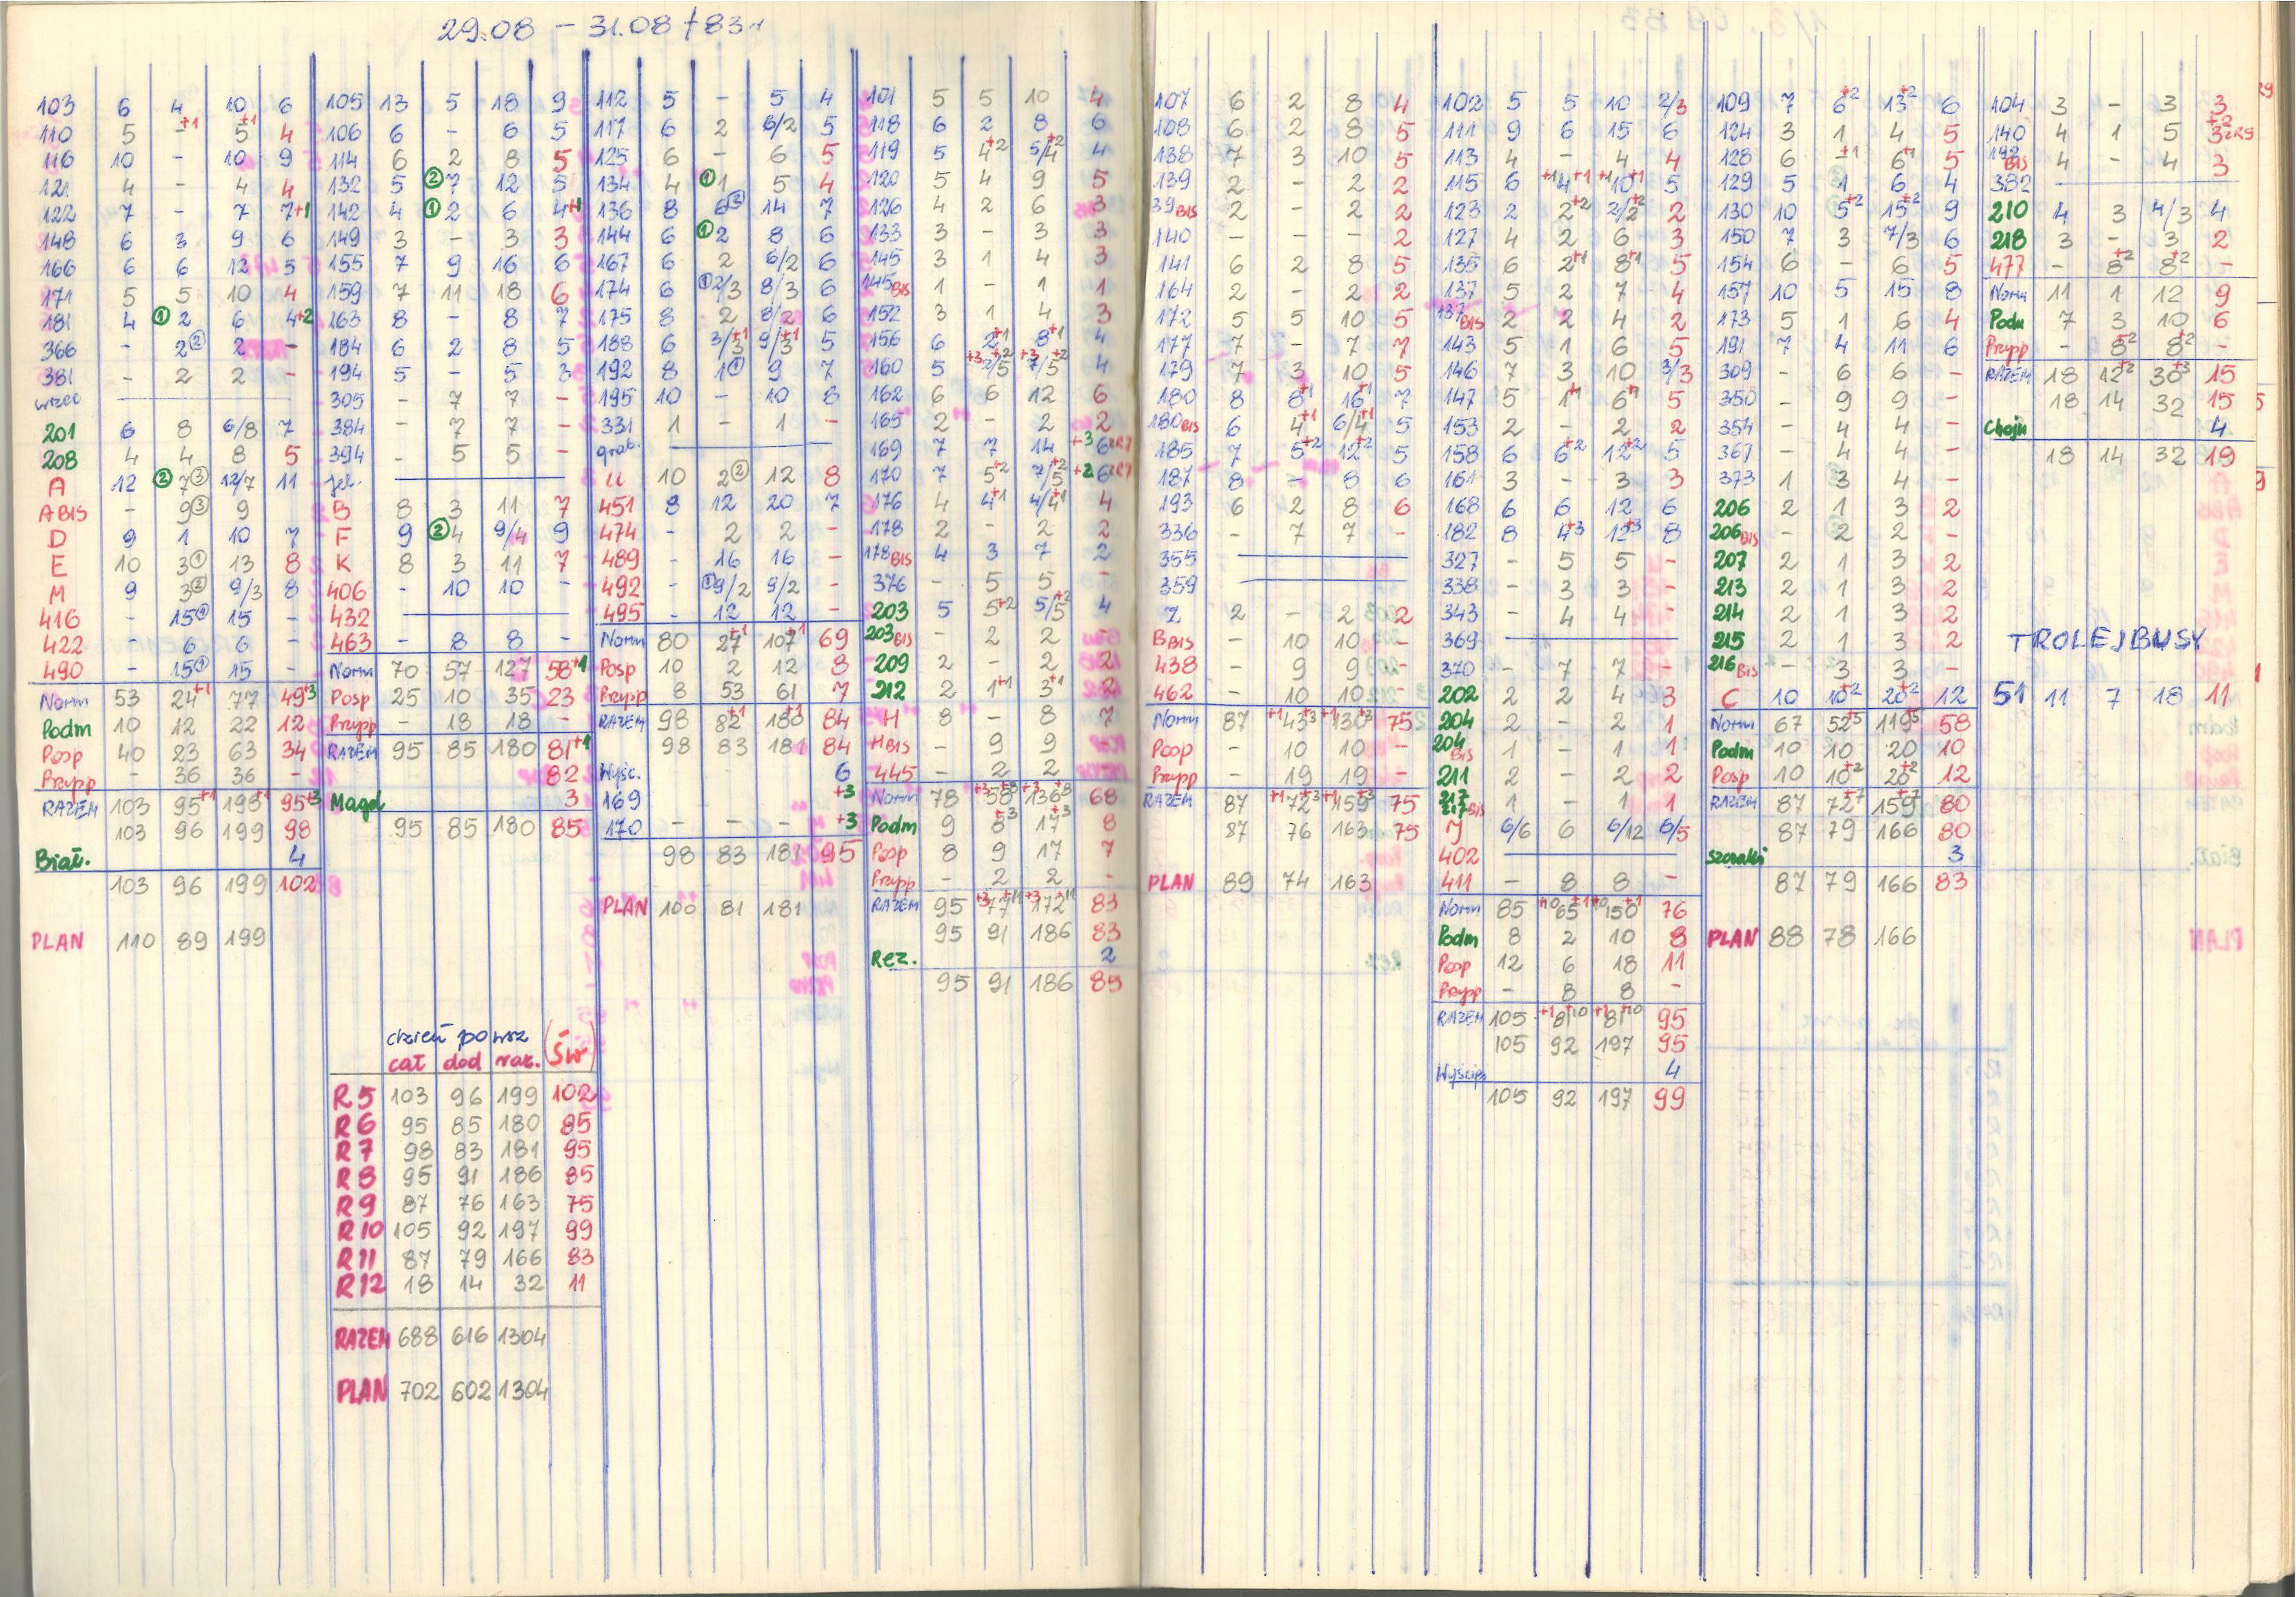 29.08 – 31.08 / 83r
103 6 4 10 6
110 5 -+1 5+1 4
116 10 - 10 9
121 4 - 4 4
122 7 - 7 7+1
148 6 3 9 6
166 6 6 12 5
171 5 5 10 4
181 4 ① 2 6 4+2
366 - 2② 2 -
381 - 2 2 -
wrzec
201 6 8 6/8 7
208 4 4 8 5
A 12 ② 7③ 12/7 11
A BIS - 9③ 9
D 9 1 10 7
E 10 3① 13 8
M 9 3② 9/3 8
416 - 15① 15 -
422 - 6 6 -
490 - 15① 15 -
Norm 53 24+1 77 49+3
Podm 10 12 22 12
Posp 40 23 63 34
Przypp - 36 36 -
RAZEM 103 95+1 198+1 95+3
103 96 199 98
Biał. 4
103 96 199 102
PLAN 110 89 199
105 13 5 18 9
106 6 - 6 5
114 6 2 8 5
132 5 ② 7 12 5
142 4 ① 2 6 4+1
149 3 - 3 3
155 7 9 16 6
159 7 11 18 6
163 8 - 8 7
184 6 2 8 5
194 5 - 5 3
305 - 7 7 -
384 - 7 7 -
394 - 5 5 -
jel.
B 8 3 11 7
F 9 ② 4 9/4 9
K 8 3 11 7
406 - 10 10 -
432
463 - 8 8 -
Norm 70 57 127 58+1
Posp 25 10 35 23
Przypp - 18 18 -
RAZEM 95 85 180 81+1
82
Magd 3
95 85 180 85
dzień powsz (Św)
cał dod raz.
R5 103 96 199 102
R6 95 85 180 85
R7 98 83 181 95
R8 95 91 186 85
R9 87 76 163 75
R10 105 92 197 99
R11 87 79 166 83
R12 18 14 32 11
RAZEM 688 616 1304
PLAN 702 602 1304
112 5 - 5 4
117 6 2 6/2 5
125 6 - 6 5
134 4 ① 1 5 4
136 8 6② 14 7
144 6 ① 2 8 6
167 6 2 6/2 6
174 6 ① 2/3 8/3 6
175 8 2 8/2 6
188 6 3/3+1 9/3+1 5
192 8 1① 9 7
195 10 - 10 8
331 1 - 1 -
grab.
U 10 2② 12 8
451 8 12 20 7
474 - 2 2 -
489 - 16 16 -
492 - ① 9/2 9/2 -
495 - 12 12 -
Norm 80 27+1 107+1 69
Posp 10 2 12 8
Przypp 8 53 61 7
RAZEM 98 82+1 180+1 84
98 83 181 84
Wyśc. 6
169 +3
170 - - - +3
98 83 181 95
PLAN 100 81 181
101 5 5 10 4
118 6 2 8 6
119 5 4+2 5/4+2 4
120 5 4 9 5
126 4 2 6 3
133 3 - 3 3
145 3 1 4 3
145 BIS 1 - 1 1
152 3 1 4 3
156 6 2+1 8+1 4
160 5 +3 2/5+2 +3 7/5+2 4
162 6 6 12 6
165 2 - 2 2
169 7 7 14 +3 6zR7
170 7 5+2 7/5+2 +2 6zR7
176 4 4+1 4/4+1 4
178 2 - 2 2
178 BIS 4 3 7 2
376 - 5 5 -
203 5 5+2 5/5+2 4
203 BIS - 2 2 -
209 2 - 2 2
212 2 1+1 3+1 2
H 8 - 8 7
H BIS - 9 9
445 - 2 2
Norm 78 +3 58+8 +3 136+8 68
Podm 9 8+3 17+3 8
Posp 8 9 17 7
Przypp - 2 2 -
RAZEM 95 +3 77+11 +3 172+11 83
95 91 186 83
Rez. 2
95 91 186 85
107 6 2 8 4
108 6 2 8 5
138 7 3 10 5
139 2 - 2 2
39 BIS 2 - 2 2
140 - - - 2
141 6 2 8 5
164 2 - 2 2
172 5 5 10 5
177 7 - 7 7
179 7 3 10 5
180 8 8+1 16+1 7
180 BIS 6 4+1 6/4+1 5
185 7 5+2 12+2 5
187 8 - 8 6
193 6 2 8 6
336 - 7 7 -
355
359
Z 2 - 2 2
B BIS - 10 10 -
438 - 9 9 -
462 - 10 10 -
Norm 87 +1 43+3 +1 130+3 75
Posp - 10 10 -
Przypp - 19 19 -
RAZEM 87 +1 72+3 +1 159+3 75
87 76 163 75
PLAN 89 74 163
102 5 5 10 2/3
111 9 6 15 6
113 4 - 4 4
115 6 +1 4+1 +1 10+1 5
123 2 2+2 2/2+2 2
127 4 2 6 3
135 6 2+1 8+1 5
137 5 2 7 4
137 BIS 2 2 4 2
143 5 1 6 5
146 7 3 10 3/3
147 5 1+1 6+1 5
153 2 - 2 2
158 6 6+2 12+2 5
161 3 - 3 3
168 6 6 12 6
182 8 4+3 12+3 8
327 - 5 5 -
338 - 3 3 -
343 - 4 4 -
369
370 - 7 7 -
202 2 2 4 3
204 2 - 2 1
204 BIS 1 - 1 1
211 2 - 2 2
217 BIS 1 - 1 1
J 6/6 6 6/12 6/5
402
411 - 8 8 -
Norm 85 +10 65+1 +10 150+1 76
Podm 8 2 10 8
Posp 12 6 18 11
Przypp - 8 8 -
RAZEM 105 +1 81+10 +1 81+10 95
105 92 197 95
Wyścig 4
105 92 197 99
109 7 6+2 13+2 6
124 3 1 4 5
128 6 -+1 6+1 5
129 5 1 6 4
130 10 5+2 15+2 9
150 7 3 7/3 6
154 6 - 6 5
157 10 5 15 8
173 5 1 6 4
191 7 4 11 6
309 - 6 6 -
350 - 9 9 -
354 - 4 4 -
367 - 4 4 -
373 1 3 4 -
206 2 1 3 2
206 BIS - 2 2 -
207 2 1 3 2
213 2 1 3 2
214 2 1 3 2
215 2 1 3 2
216 BIS - 3 3 -
C 10 10+2 20+2 12
Norm 67 52+5 119+5 58
Podm 10 10 20 10
Posp 10 10+2 20+2 12
RAZEM 87 72+7 159+7 80
87 79 166 80
Szczaki 3
87 79 166 83
PLAN 88 78 166
104 3 - 3 3
140 4 1 5 3+2zR9
192 BIS 4 - 4 3
382 -
210 4 3 4/3 4
218 3 - 3 2
477 - 8+2 8+2 -
Norm 11 1 12 9
Podm 7 3 10 6
Przypp - 8+2 8+2 -
RAZEM 18 12+2 30+3 15
18 14 32 15
Chojn 4
18 14 32 19
TROLEJBUSY
51 11 7 18 11